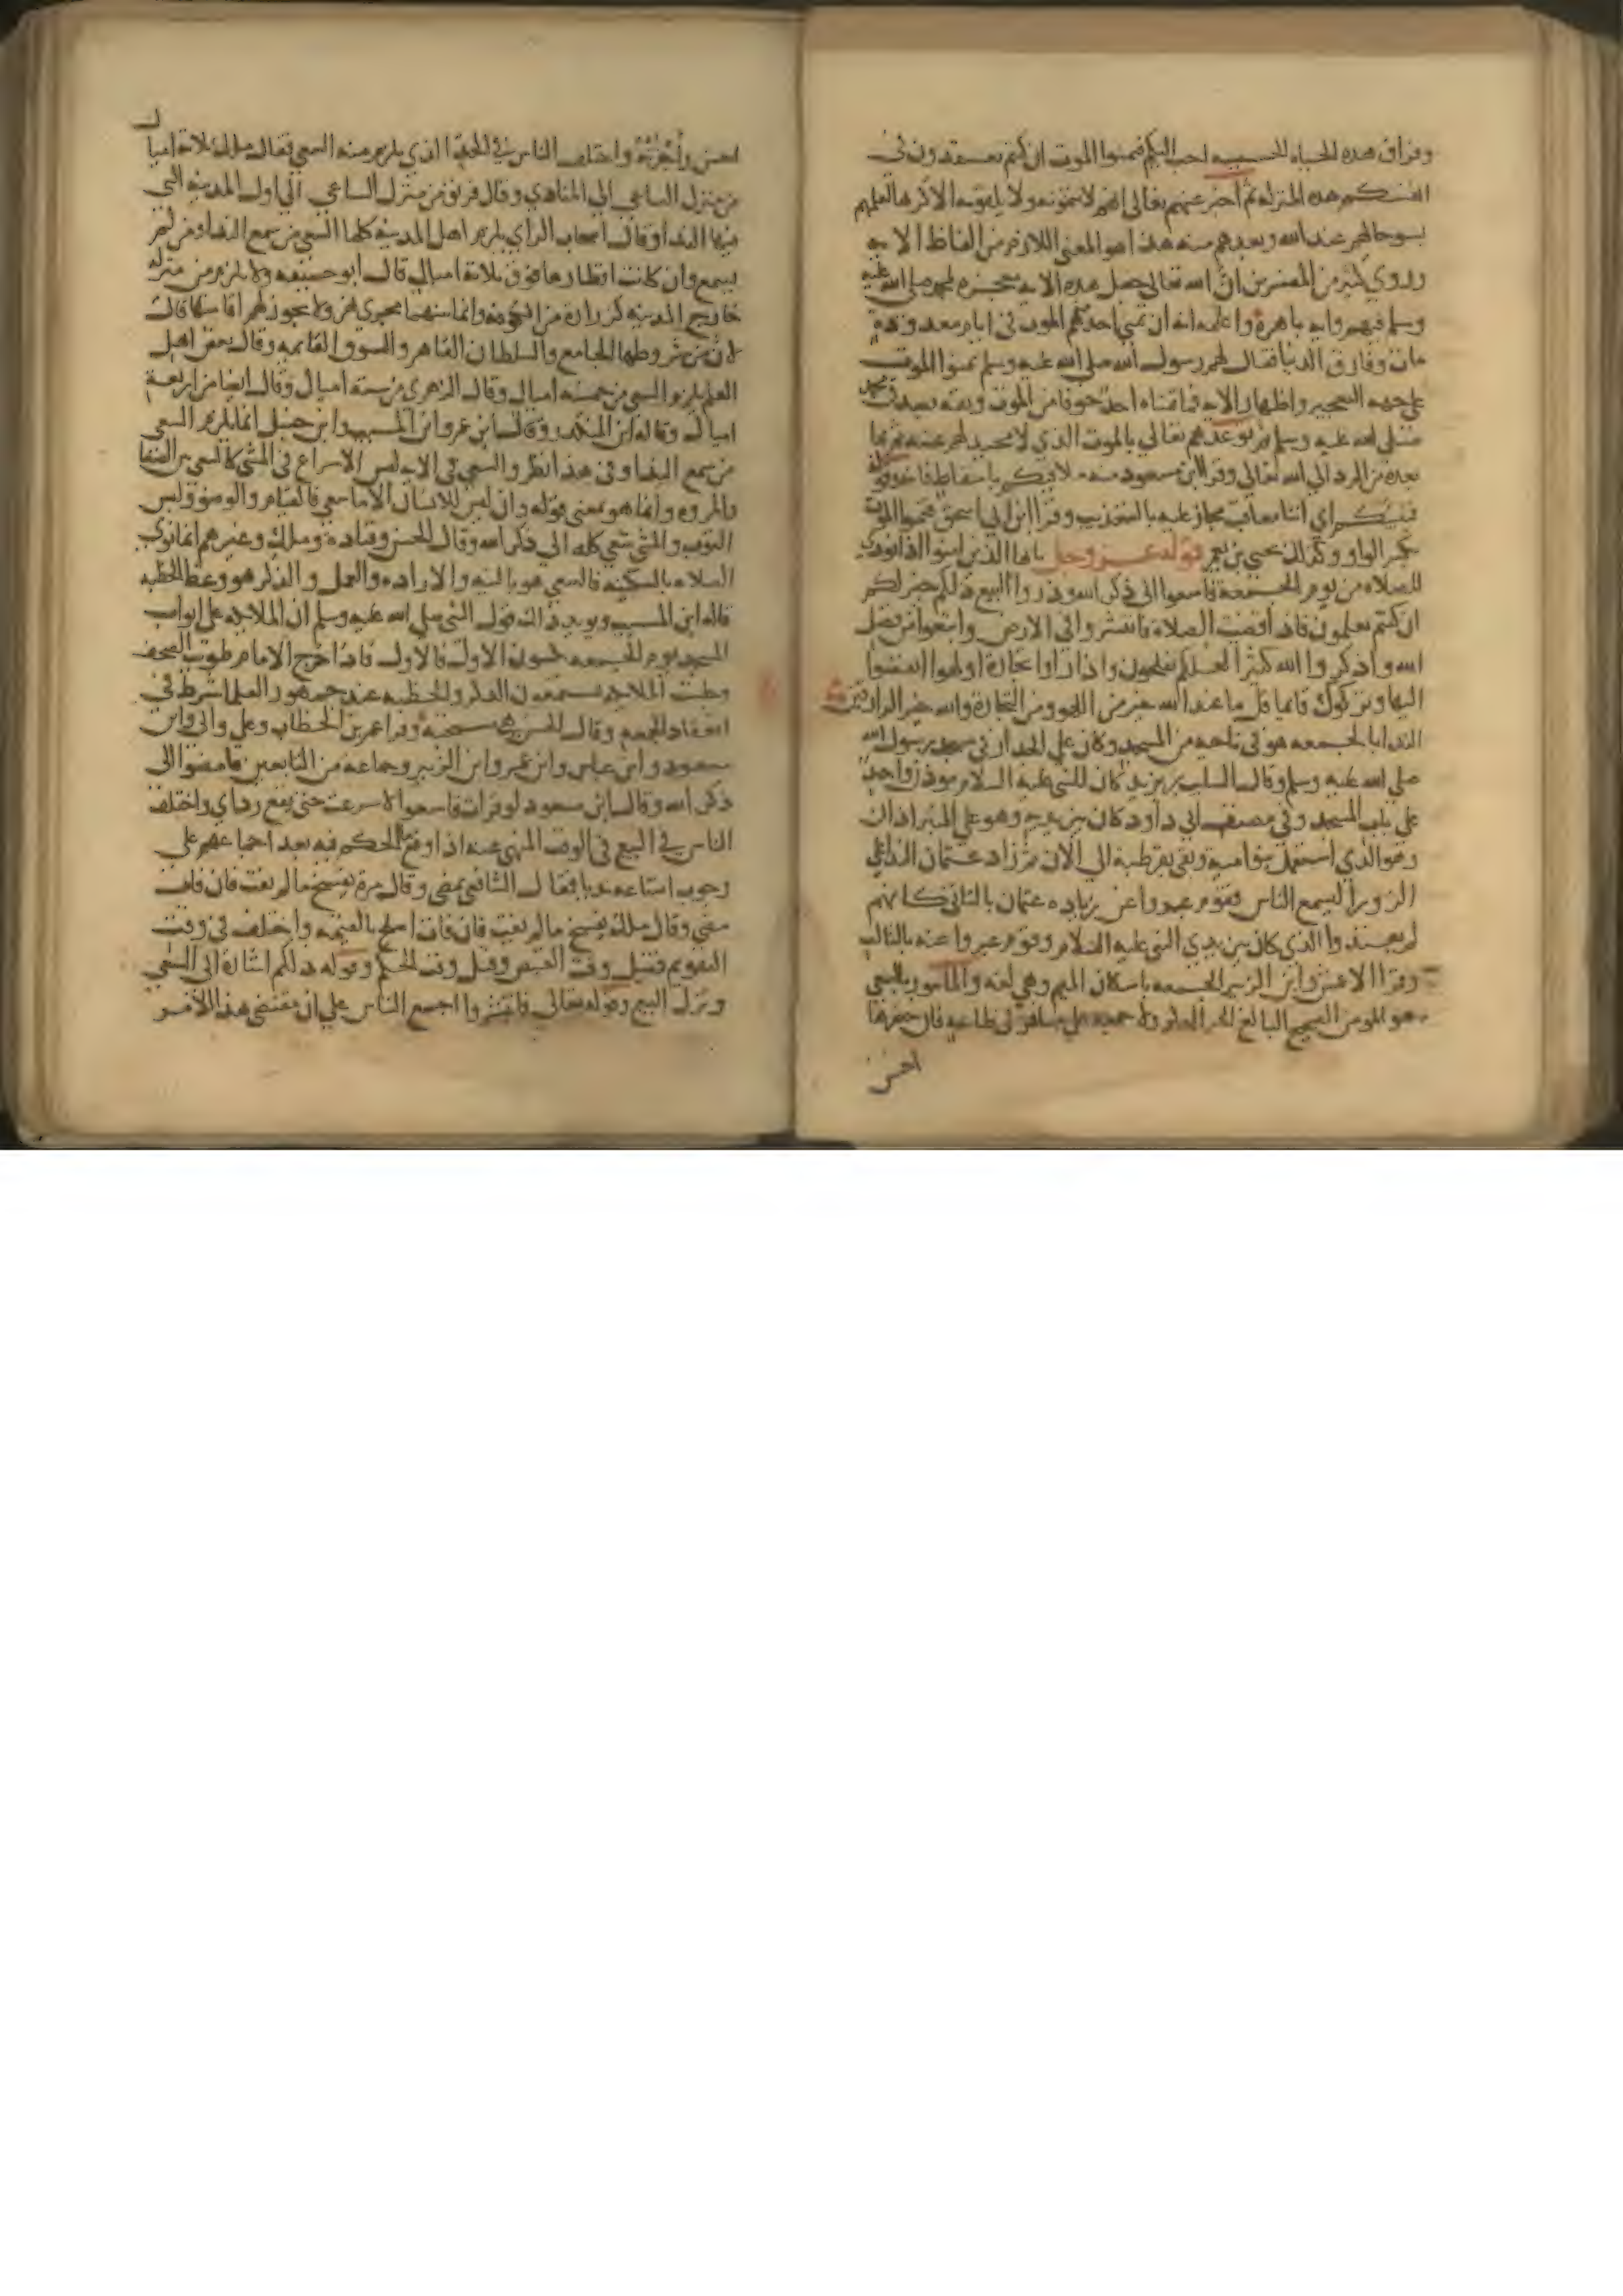 وفراق هذه الحياة الخسيسه احب اليكم فتمنوا الموت ان كنتم تعتقدون في
انفسكم هذه المنزله ثم اخبر عنهم تعالى انهم لا يتمنونه ولا يلقونه الا كرها لعلمهم
بسو حالهم عند الله وبعدهم منه هذا هو المعنى اللازم من الفاظ الايه
وروي كثير من المفسرين ان الله تعالى جعل هذه الايه معجزه لمحمد صلى الله عليه
وسلم فيهم وايه باهرة واعلمه انه ان تمنى احدهم الموت في ايام معدودة
مات وفارق الدنيا فقال لهم رسول الله صلى الله عليه وسلم تمنوا الموت
على جهه التعجيز واظهار الايه فما تمناه احد خوفا من الموت وثقه بصدق محمد
صلى الله عليه وسلم ثم توعدهم تعالى بالموت الذي لا محيد لهم عنه ثم بما
بعده من الرد الى الله تعالى وقرا ابن مسعود منه ملاقيكم باسقاط فانه وقوله
فينبئكم اي انبا معاقب مجاز عليه بالتعذيب وقرا ابن ابي اسحق فتمنوا الموت
بكسر الواو وكذلك يحيى بن يعمر قوله عز وجل يا ايها الذين امنوا اذا نودي
للصلاه من يوم الجمعة فاسعوا الى ذكر الله وذروا البيع ذلكم خير لكم
ان كنتم تعلمون فاذا قضيت الصلاة فانتشروا في الارض وابتغوا من فضل
الله واذكروا الله كثيرا لعلكم تفلحون واذا راوا تجارة او لهوا انفضوا
اليها وتركوك قايما قل ما عند الله خير من اللهو ومن التجارة والله خير الرازقين
الندا بالجمعه هو في ناحيه من المسجد وكان على الجدار في مسجد رسول الله
صلى الله عليه وسلم وقال السايب بن يزيد كان للنبي عليه السلام موذن واحد
على باب المسجد وفي مصنف ابي داود كان بين يديه وهو على المنبر اذان
وهو الذي استعمل بنو امية وبقي بقرطبة الى الان ثم زاد عثمان الندا على
الزورا ليسمع الناس فقوم عبروا عن زياده عثمان بالثاني كانهم
لم يعتدوا الذي كان بين يدي النبي عليه السلام وقوم عبروا عنه بالثالث
وقرا الاعمش وابن الزبير الجمعه باسكان الميم وهي لغه والمامور بالسعي
هو المومن الصحيح البالغ الحر الذكر ولا جمعه على مسافر في طاعه فان حضرها
احسن
احسن واجزته واختلف الناس في الحد الذي يلزم منه السعي فقال مالك ثلاثة اميال
من منزل الساعي الى المنادي وقال فريق من منزل الساعي الى اول المدينه التي
فيها الندا وقال اصحاب الراي يلزم اهل المدينه كلها السعي من سمع الندا ومن لم
يسمع وان كانت اقطارها فوق ثلاثة اميال قال ابو حنيفه ولا يلزم من منزله
خارج المدينه كزرارة من الكوفه وانما بينهما مجرى نهر ولا يجوز لهم اقامتها قال
لان من شروطها الجامع والسلطان القاهر والسوق القايمه وقال بعض اهل
العلم يلزم السعي من خمسه اميال وقال الزهري من سته اميال وقال ايضا من اربعة
اميال وقاله ابن المنكدر وقال ابن عمر وابن المسيب وابن حنبل انما يلزم السعي
من سمع الندا وفي هذا نظر والسعي في الايه ليس الاسراع في المشي كالسعي بين الصفا
والمروه وانما هو بمعنى قوله وان ليس للانسان الا ما سعى فالقيام والوضو ولبس
الثوب والمشي سعي كله الى ذكر الله وقال الحسن وقتادة ومالك وغيرهم انما توتى
الصلاه بالسكينه فالسعي هو بالنيه والاراده والعمل والذكر هو وعظ الخطبه
قاله ابن المسيب ويويد ذلك قول النبي صلى الله عليه وسلم ان الملايكه على ابواب
المسجد يوم الجمعه يكتبون الاول فالاول فاذا خرج الامام طويت الصحف
وجلست الملايكه يستمعون الذكر والخطبه عند جمهور العلما شرط في
انعقاد الجمعه وقال الحسن هي مستحبه وقرا عمر بن الخطاب وعلي وابي وابن
مسعود وابن عباس وابن عمر وابن الزبير وجماعه من التابعين فامضوا الى
ذكر الله وقال ابن مسعود لو قرات فاسعوا لاسرعت حتى يقع رداي واختلف
الناس في البيع في الوقت المنهي عنه اذا وقع ما الحكم فيه بعد اجماعهم على
وجوب امتناعه بديا فقال الشافعي يمضي وقال مرة يفسخ ما لم يفت فان فات
مضى وقال مالك يفسخ ما لم يفت فان فات اصلح بالقيمه واختلف في وقت
التقويم فقيل وقت القبض وقيل وقت الحكم وقوله ذلكم اشارة الى السعي
وترك البيع وقوله تعالى فانتشروا اجمع الناس على ان مقتضى هذا الامر